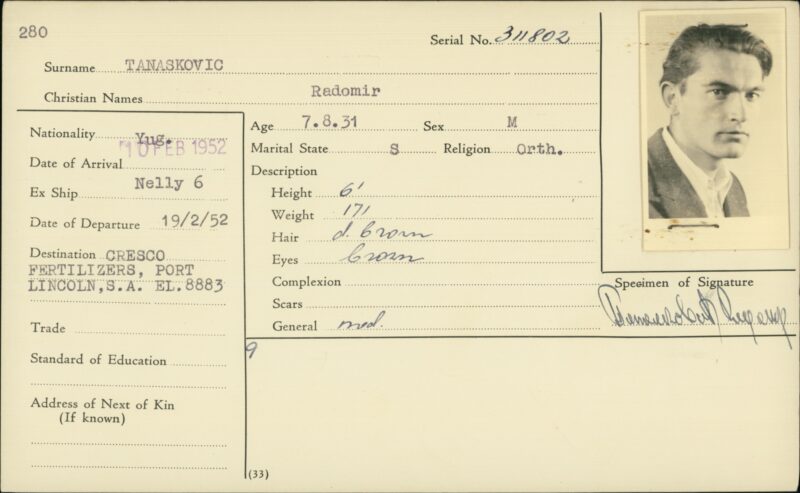 280
Serial No. 311802
Surname TANASKOVIC
Christian Names Radomir
Nationality Yug.
Date of Arrival 10 FEB 1952
Ex Ship Nelly 6
Date of Departure 19/2/52
Destination CRESCO
FERTILIZERS, PORT
LINCOLN,S.A. EL.8883
Trade
Standard of Education
Address of Next of Kin
(If known)
Age 7.8.31 Sex M
Marital State S Religion Orth.
Description
Height 6'
Weight 171
Hair d. brown
Eyes brown
Complexion
Scars
General med.
Specimen of Signature
9
(33)